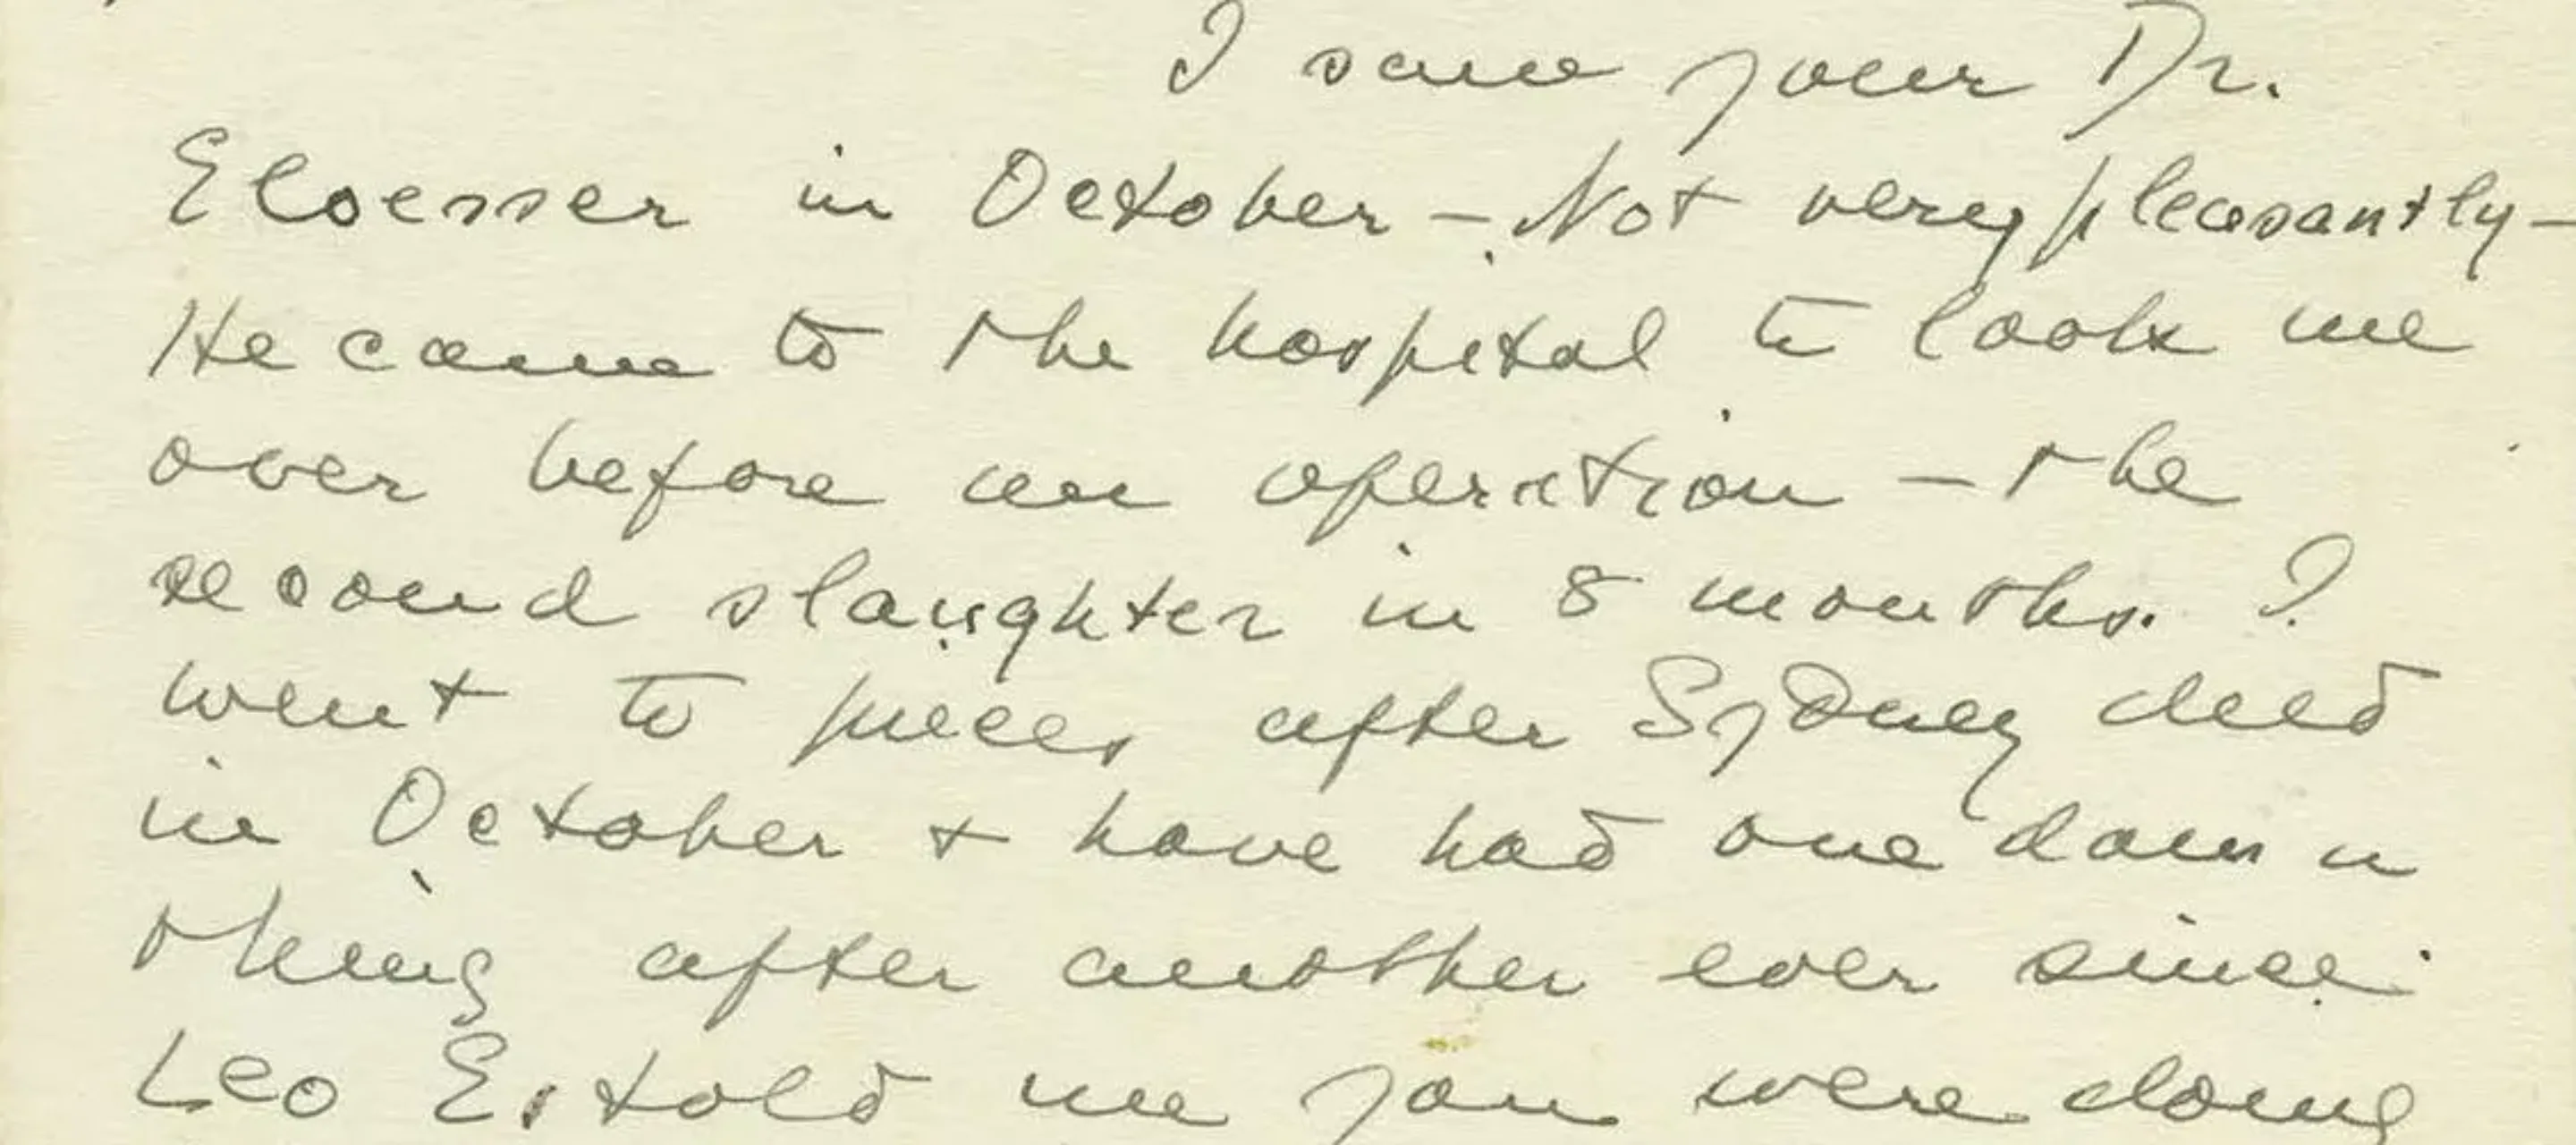 I saw your Dr.
Eloesser in October - Not very pleasantly -
He came to the hospital to look me
over before an operation - the
second slaughter in 8 months. I
went to pieces after Sydney died
in October + have had one damn
thing after another ever since.
Leo E. told me you were doing